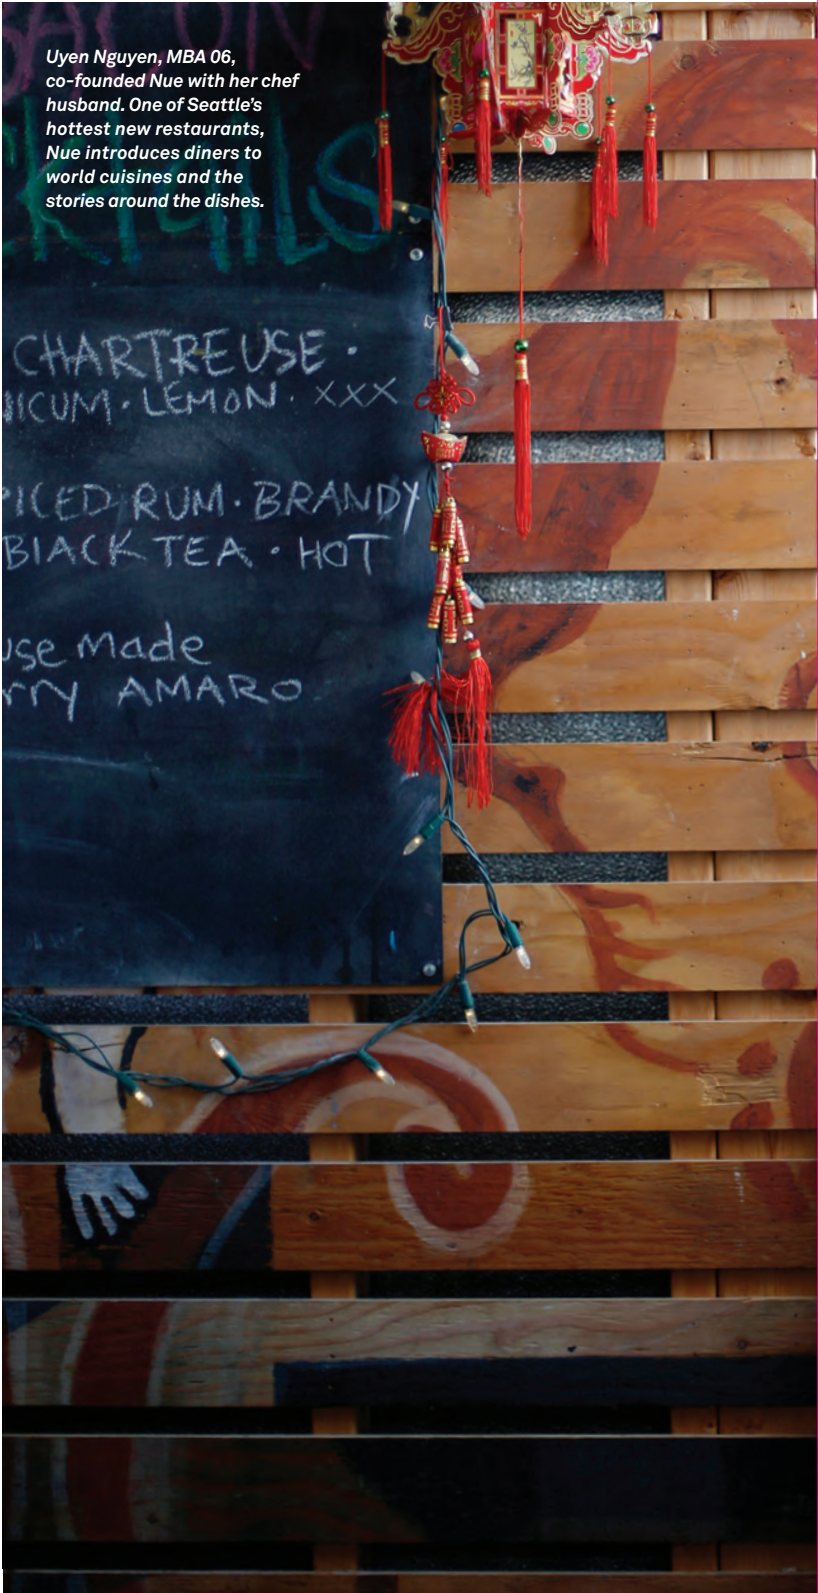 Uyen Nguyen, MBA 06,
co-founded Nue with her chef
husband. One of Seattle’s
hottest new restaurants,
Nue introduces diners to
world cuisines and the
stories around the dishes.
CHARTREUSE ·
· LEMON · XXX
RUM · BRANDY
BLACK TEA · HOT
made
AMARO